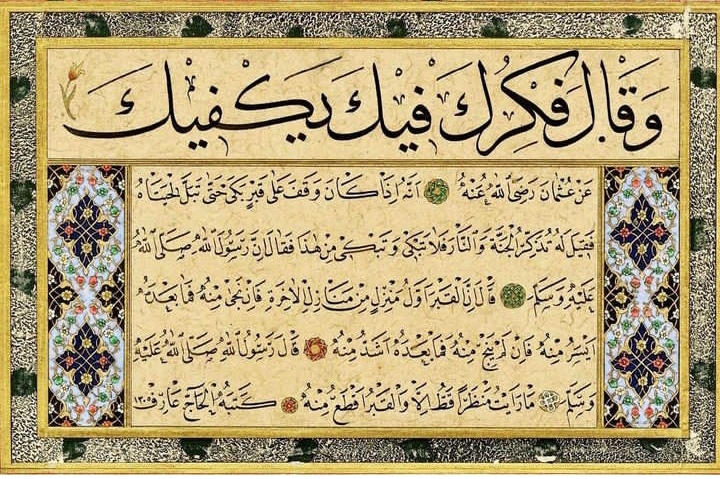 وَقَالَ فِكْرُكَ فِيكَ يَكْفِيكَ
عَنْ عُثْمَانَ رَضِيَ اللّٰهُ عَنْهُ اَنَّهُ اِذَا كَانَ وَقَفَ عَلَى قَبْرٍ بَكَى حَتَّى تَبُلَّ لِحْيَتَاهُ
فَقِيلَ لَهُ تَذَكَّرُ الْجَنَّةَ وَالنَّارَ فَلَا تَبْكِي وَتَبْكِي مِنْ هٰذَا فَقَالَ اِنَّ رَسُولَ اللّٰهِ صَلَّى اللّٰهُ
عَلَيْهِ وَسَلَّمَ قَالَ اِنَّ الْقَبْرَ اَوَّلُ مَنْزِلٍ مِنْ مَنَازِلِ الْاٰخِرَةِ فَاِنْ نَجَى مِنْهُ فَمَا بَعْدَهُ
اَيْسَرُ مِنْهُ فَاِنْ لَمْ يَنْجُ مِنْهُ فَمَا بَعْدَهُ اَشَدُّ مِنْهُ قَالَ رَسُولُ اللّٰهِ صَلَّى اللّٰهُ عَلَيْهِ
وَسَلَّمَ مَا رَاَيْتُ مَنْظَرًا قَطُّ اِلَّا وَالْقَبْرُ اَفْظَعُ مِنْهُ كَتَبَهُ الْحَاجّ عَارِف ١٣٠٥